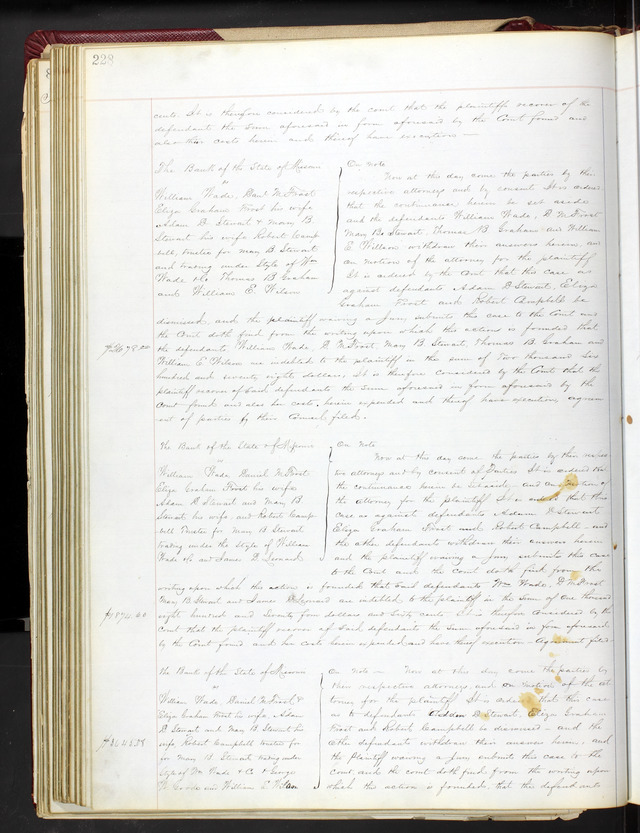 228
cents. It is therefore considered by the court that the plaintiff recover of the
defendants the sum aforesaid in form aforesaid by the Court found and
also their costs herein and thereof have execution —
The Bank of the State of Missouri
vs
William Wade, Danl McFrost
Eliza Graham Frost his wife
Adam D Stewart & Mary B
Stewart his wife Robert Camp
bell, trustee for Mary B Stewart
and trading under Style of Wm
Wade & Co Thomas B Graham
and William E Wilson
On Note
Now at this day come the parties by their
respective attorneys and by consent It is ordered
that the continuance herein be set aside
and the defendants William Wade, D McFrost
Mary B Stewart, Thomas B Graham and William
E Wilson withdraw their answers herein, and
on motion of the attorney for the plaintiff
It is ordered by the Court that this case as
against defendants Adam D Stewart, Eliza
Graham Frost and Robert Campbell be
dismissed and the plaintiff waiving a Jury submits this case to the Court and
the Court doth find from the writing upon which this action is founded that
$2678.00
the defendants William Wade, D McFrost Mary B Stewart, Thomas B. Graham and
William E Wilson are indebted to the plaintiff in the sum of Two thousand Six
hundred and seventy eight dollars, It is therefore Considered by the Court that the
plaintiff recover of Said defendants the Sum aforesaid in form aforesaid by the
Court found and also her costs, herein expended and thereof have execution, agreem
ent of parties by their Counsel filed.
The Bank of the State of Missouri
vs
William Wade Daniel McFrost
Eliza Graham Frost his wife
Adam D Stewart and Mary B
Stewart, his wife, and Robert Camp
bell Trustee for Mary B Stewart
trading under the Style of William
Wade & Co and James
On Note
Now at this day come the parties by their respec
tive attorneys and by consent of Parties It is ordered that
the continuance herein be set aside, and on motion of
the attorney for the plaintiff It is ordered that this
case as against defendants Adam D Stewart
Eliza Graham Frost and Robert Campbell, and
the other defendants withdraw their answers herein
and the plaintiff waiving a Jury submits this case
to the Court and the Court doth find from the
writing upon which the action is founded that said defendants Wm Wade, D McFrost
Mary B Stewart and James are indebted to the plaintiff in the Sum of One thousand
$1874.60
eight hundred and Seventy four dollars and Sixty cents It is therefore Considered by the
Court that the plaintiff recover of Said defendants the Sum aforesaid in form aforesaid
by the Court found and her costs herein expended and have thereof execution — Agreement filed
The Bank of the State of Missouri
vs
William Wade, Daniel McFrost &
Eliza Graham Frost his wife Adam
D Stewart and Mary B Stewart his
wife Robert Campbell trustee for
for Mary B Stewart trading under
Style of Wm Wade & Co & George
and William E Wilson
On Note — Now at this day come the parties by
their respective attorneys and on motion of the at
torney for the plaintiff It is ordered that this case
as to defendants Adam D Stewart, Eliza Graham
Frost and Robert Campbell be dismissed — and the
other defendants withdraw their answer herein, and
the Plaintiff waiving a Jury submits this case to the
court and the court doth find from the writing upon
which this action is founded, that the defendants